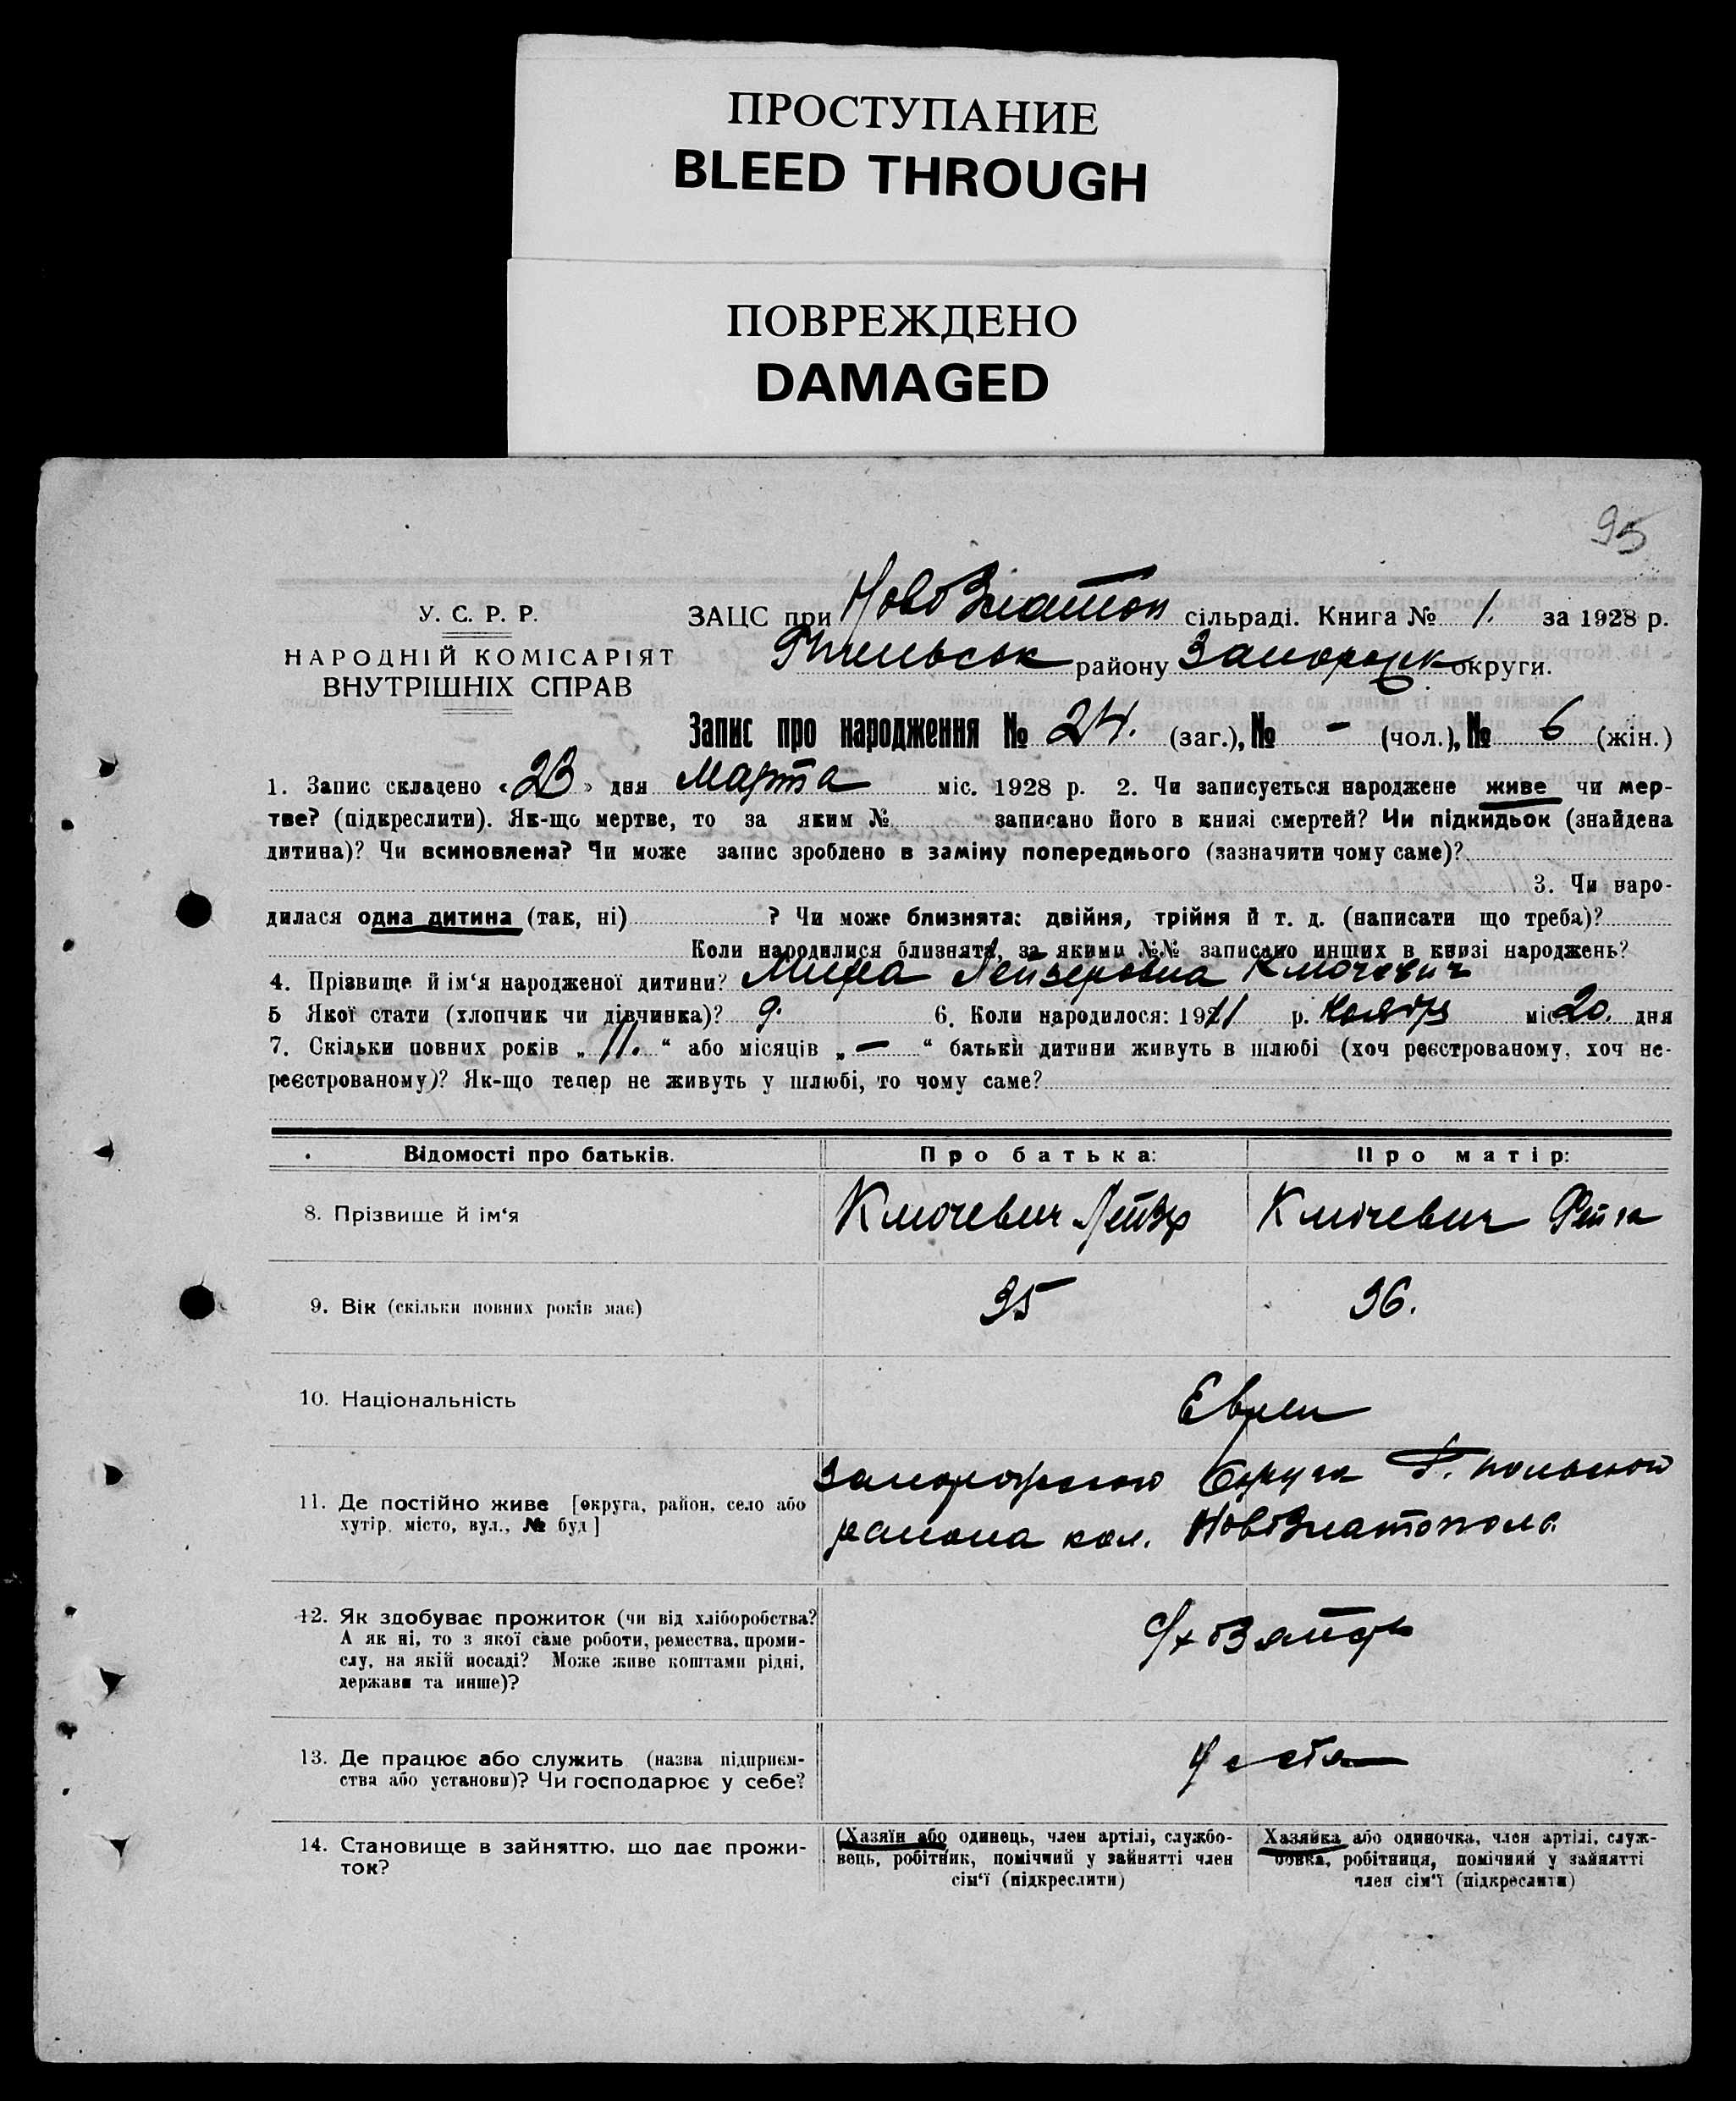 ПРОСТУПАНИЕ
BLEED THROUGH
ПОВРЕЖДЕНО
DAMAGED
95
У. С. Р. Р.
НАРОДНІЙ КОМІСАРІЯТ
ВНУТРІШНІХ СПРАВ
ЗАЦС при НовоЗлатоп сільраді. Книга № 1. за 1928 р.
району Запорозк округи.
Запис про народження № 24. (заг.), № - (чол.), № 6 (жін.)
1. Запис складено «23» дня Марта міс. 1928 р. 2. Чи записується народжене живе чи мер-
тве? (підкреслити). Як-що мертве, то за яким № записано його в книзі смертей? Чи підкидьок (знайдена
дитина)? Чи всиновлена? Чи може запис зроблено в заміну попереднього (зазначити чому саме)?
3. Чи наро-
дилася одна дитина (так, ні) ? Чи може близнята: двійня, трійня й т. д. (написати що треба)?
Коли народилися близнята, за якими №№ записано инших в книзі народжень?
4. Прізвище й ім‘я народженої дитини? Лейзеровна Ключевич
5 Якої стати (хлопчик чи дівчинка)? 6. Коли народилося: 19 р. Ноября міс. 20. дня
7. Скільки повних років „ 11. “ або місяців „ — “ батьки дитини живуть в шлюбі (хоч реєстрованому, хоч не-
реєстрованому)? Як-що тепер не живуть у шлюбі, то чому саме?
Відомості про батьків. Про батька: Про матір:
8. Прізвище й ім‘я Ключевич Лейзер Ключевич Фейга
9. Вік (скільки повних років має) 35 36.
10. Національність Евреи
11. Де постійно живе [округа, район, село або
хутір, місто, вул., № буд]
Запорожского Округа польского
района кол. НовоЗлатополь
12. Як здобуває прожиток (чи від хліборобства?
А як ні, то з якої саме роботи, ремества, проми-
слу, на якій посаді? Може живе коштами рідні,
держави та инше)?
13. Де працює або служить (назва підприєм-
ства або установи)? Чи господарює у себе?
14. Становище в зайняттю, що дає прожи-
ток?
(Хазяїн або одинець, член артілі, службо-
вець, робітник, помічний у зайнятті член
сім‘ї (підкреслити)
Хазяйка або одиночка, член артілі, служ-
бовка, робітниця, помічний у зайнятті
член сім‘ї (підкреслити)